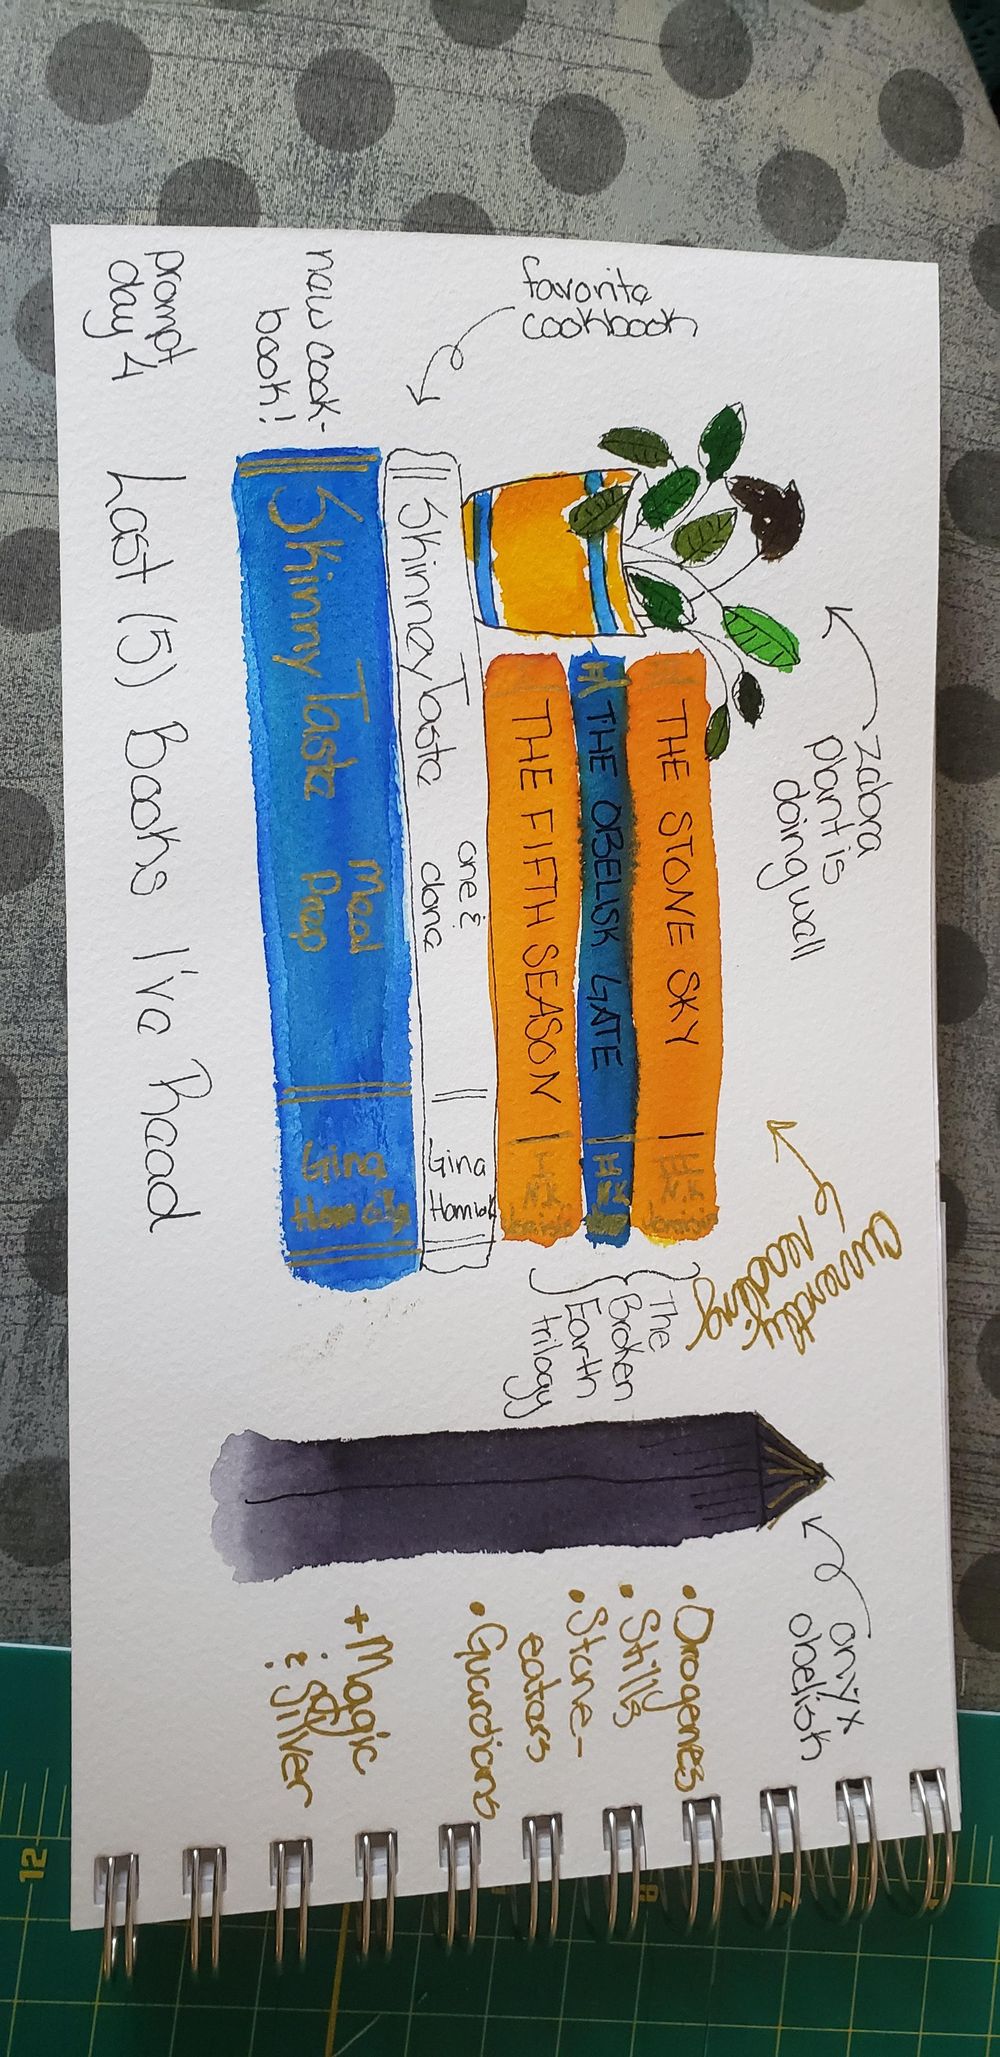 zebra
plant is
doing well
currently
reading
onyx
obelisk
THE STONE SKY
N.K
Jemisin
THE OBELISK GATE
N.K
THE FIFTH SEASON
N.K
Jemisin
The
Broken
Earth
trilogy
• Orogenes
• Stills
• Stone-
eaters
• Guardians
+ Magic
& Silver
favorite
cookbook
SkinneyTaste
one &
done
Gina
new cook-
book!
SkinnyTaste
Meal
Prep
Gina
Homolka
prompt
day 4
Last (5) Books I've Read
12